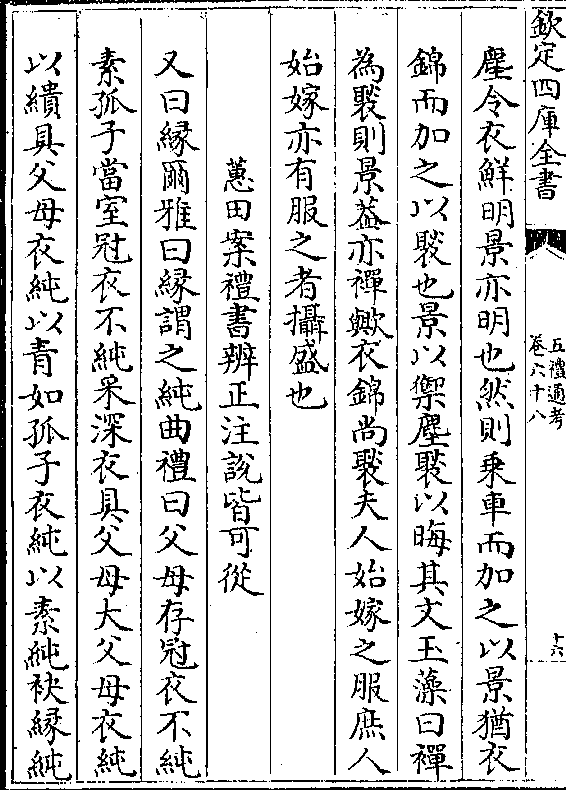 欽定四庫全書
五禮通考
卷六十八
十六
塵令衣鮮明景亦明也然則乗車而加之以景猶衣
錦而加之以褧也景以禦塵褧以晦其文玉藻曰襌
為褧則景葢亦襌歟衣錦尚褧夫人始嫁之服庶人
始嫁亦有服之者攝盛也
蕙田案禮書辨正注說皆可從
又曰緣爾雅曰緣謂之純曲禮曰父母存冠衣不純
素孤子當室冠衣不純采深衣具父母大父母衣純
以繢具父母衣純以青如孤子衣純以素純袂緣純